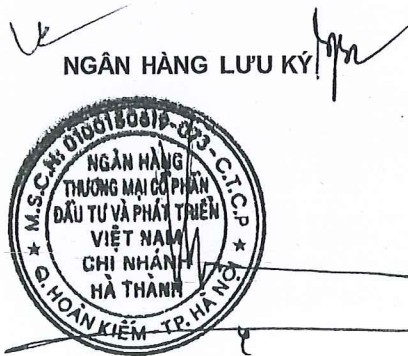 NGÂN HÀNG LƯU KÝ
M.S.C.N: 0100150619-073-C.T.C.P
NGÂN HÀNG
THƯƠNG MẠI CỔ PHẦN
ĐẦU TƯ VÀ PHÁT TRIỂN
VIỆT NAM
CHI NHÁNH
HÀ THÀNH
Q. HOÀN KIẾM - TP. HÀ NỘI